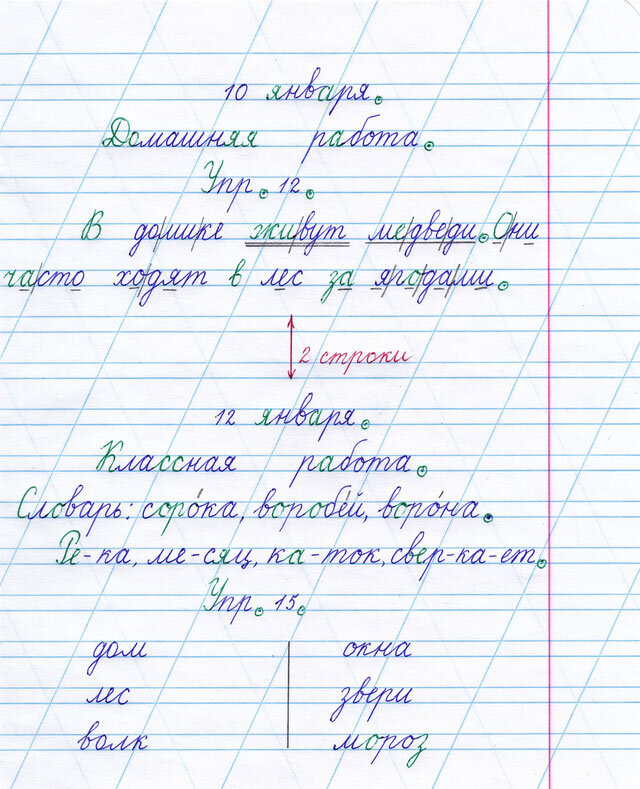 10 января.
Домашняя работа.
Упр. 12.
В до/ми/ке жи/вут ме/две/ди. О/ни
ча/сто хо/дят в лес за я/го/да/ми.
2 строки
12 января.
Классная работа.
Словарь: соро́ка, воробе́й, воро́на.
Ре-ка, ме-сяц, ка-ток, свер-ка-ет.
Упр. 15.
дом окна
лес звери
волк мороз